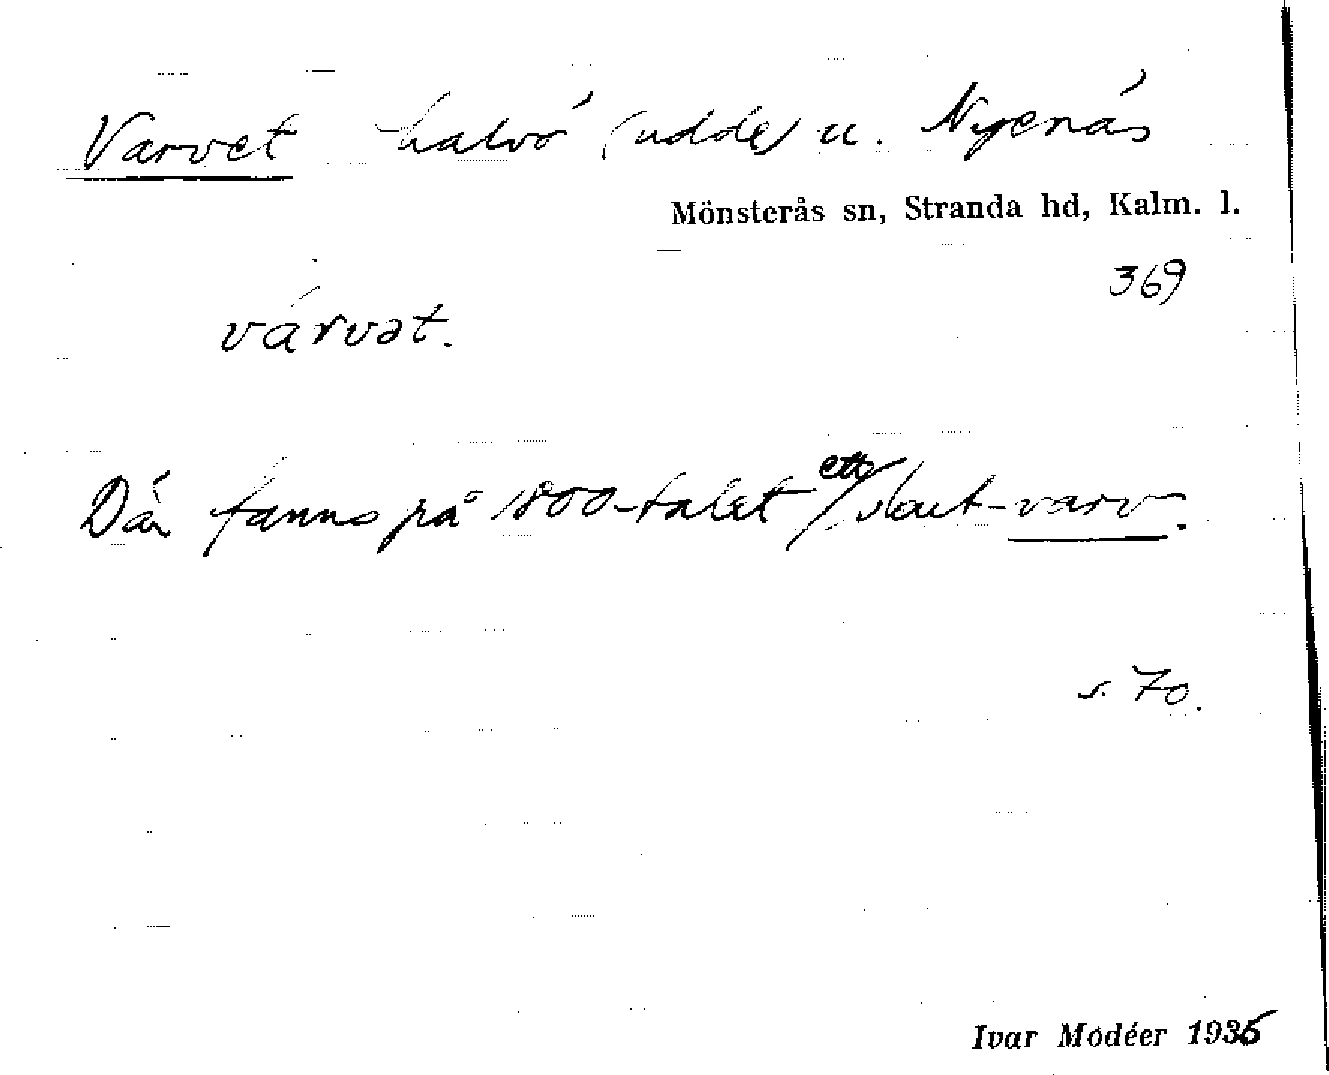 Varvet halvö (udde) u. Nyenäs
Mönsterås sn, Stranda hd, Kalm. l.
369
várvət.
Där fanns på 1800-talet ett skut-varv.
s. 70.
Ivar Modéer 1936